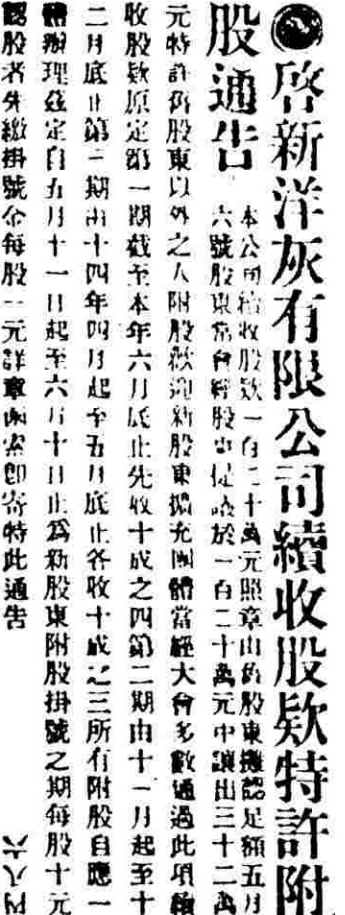 啓新洋灰有限公司續收股欵特許附
股通告
本公司續收股欵一百二十萬元照章由舊股東攤認足額五月
六號股東常會經股東提議於一百二十萬元中讓出三十二萬
元特許舊股東以外之人附股歡迎新股東擴充團體當經大會多數通過此項續
收股欵原定第一期截至本年六月底止先收十成之四第二期由十一月起至十
二月底止第三期由十四年四月起至五月底止各收十成之三所有附股自應一
體辦理茲定自五月十一日起至六月十日止爲新股東附股掛號之期每股十元
認股者先繳掛號金每股一元詳章函索卽寄特此通告
六八内